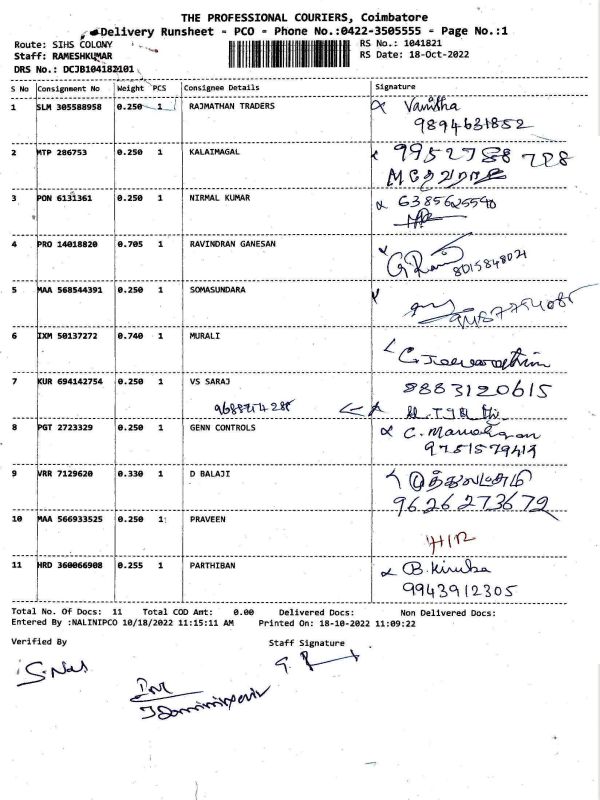 THE PROFESSIONAL COURIERS, Coimbatore
Delivery Runsheet - PCO - Phone No.:0422-3505555 - Page No.:1
Route: SIHS COLONY RS No.: 1041821
Staff: RAMESHKUMAR RS Date: 18-Oct-2022
DRS No.: DCJB104182101
S No Consignment No Weight PCS Consignee Details Signature
1 SLM 305588958 0.250 1 RAJMATHAN TRADERS Vanitha
9894631852
2 MTP 286753 0.250 1 KALAIMAGAL
3 PON 6131361 0.250 1 NIRMAL KUMAR 6385625590
4 PRO 14018820 0.705 1 RAVINDRAN GANESAN
8015848021
5 MAA 568544391 0.250 1 SOMASUNDARA
6 IXM 50137272 0.740 1 MURALI
7 KUR 694142754 0.250 1 VS SARAJ 8883120615
8 PGT 2723329 0.250 1 GENN CONTROLS C. Manoharan
9751579419
9 VRR 7129620 0.330 1 D BALAJI
9626273672
10 MAA 566933525 0.250 1 PRAVEEN
11 HRD 360066908 0.255 1 PARTHIBAN B. Kiruba
9943912305
Total No. Of Docs: 11 Total COD Amt: 0.00 Delivered Docs: Non Delivered Docs:
Entered By :NALINIPCO 10/18/2022 11:15:11 AM Printed On: 18-10-2022 11:09:22
Verified By Staff Signature